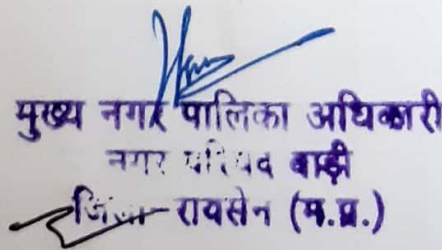 मुख्य नगर पालिका अधिकारी
नगर परिषद बाड़ी
जिला रायसेन (म.प्र.)